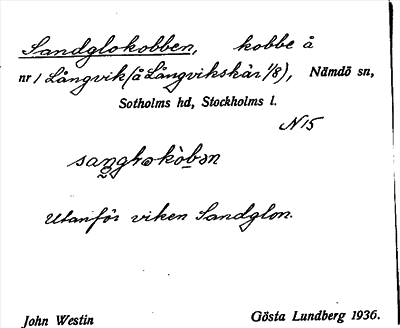 Sandglokobben, kobbe å
nr 1 Långvik (å Långvikskär 1/8), Nämdö sn,
Sotholms hd, Stockholms l.
N15
Utanför viken Sandglon.
John Westin Gösta Lundberg 1936.